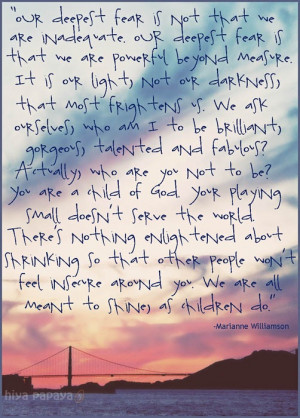 "Our deepest fear is not that we
are inadequate. Our deepest fear is
that we are powerful beyond measure.
It is our light, not our darkness,
that most frightens us. We ask
ourselves, who am I to be brilliant,
gorgeous, talented and fabulous?
Actually, who are you not to be?
You are a child of God. Your playing
small doesn't serve the world.
There's nothing enlightened about
shrinking so that other people won't
feel insecure around you. We are all
meant to shine, as children do."
-Marianne Williamson
hiya papaya